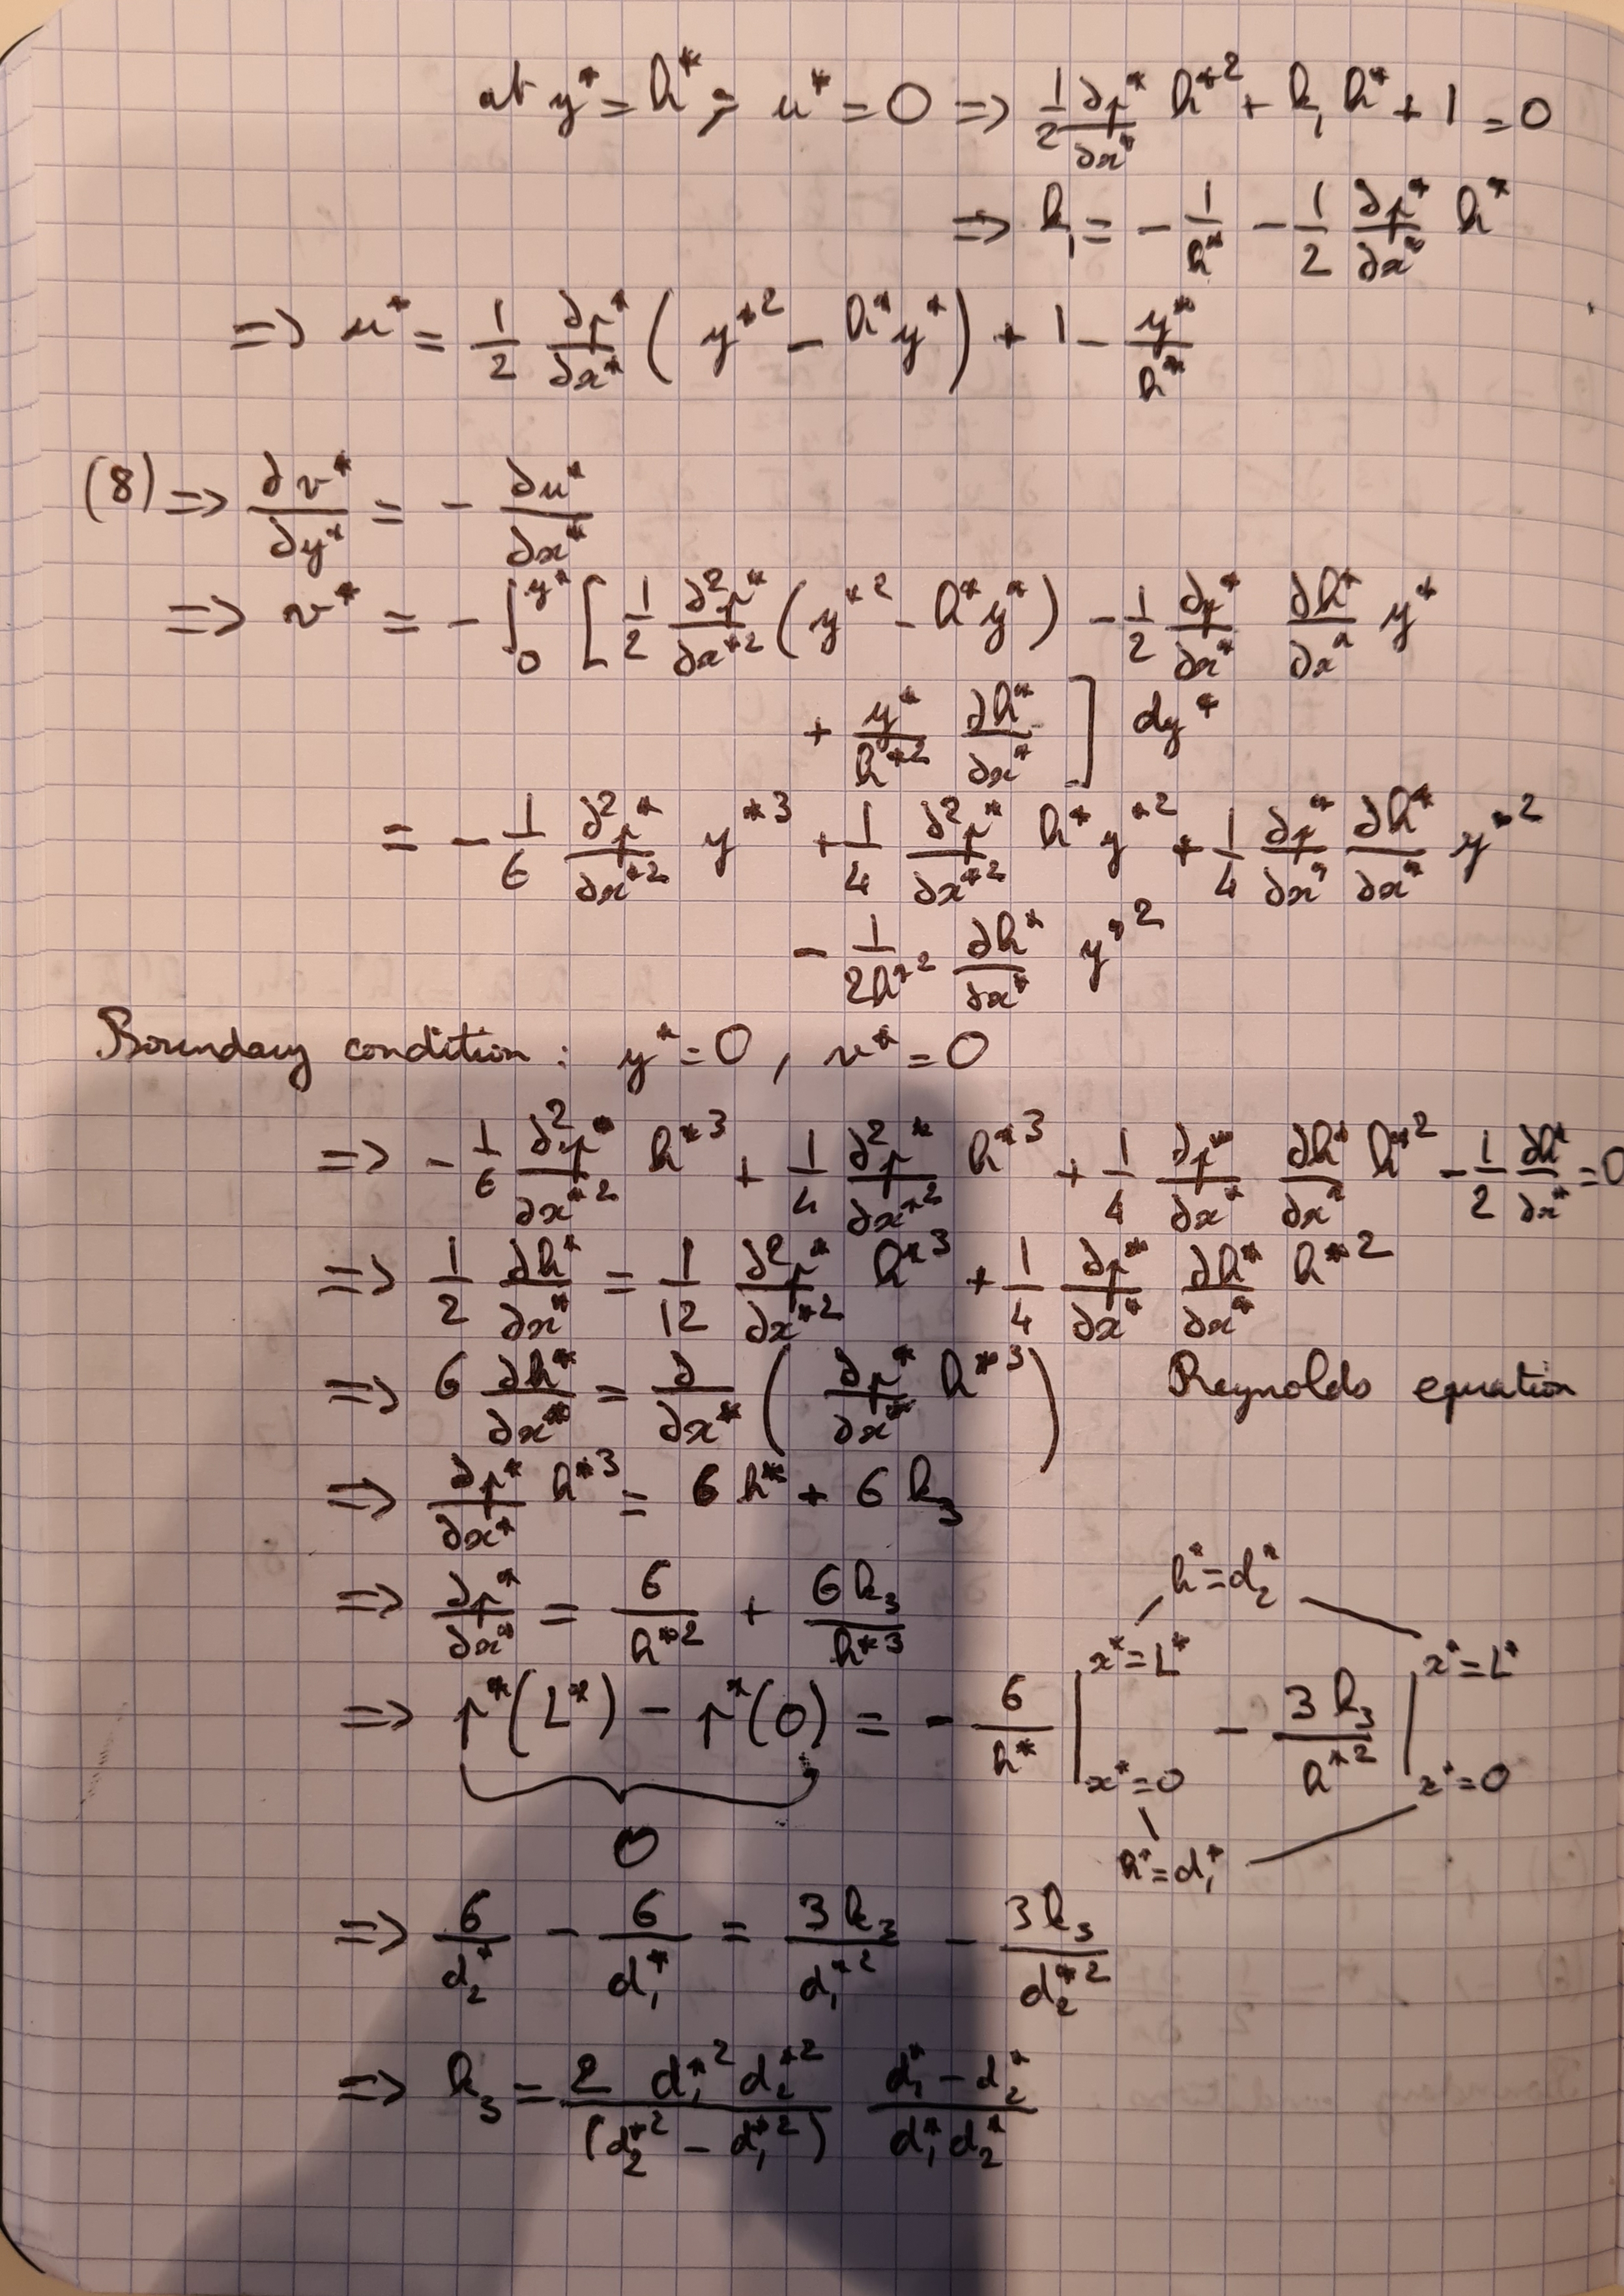 at y* = h*, u* = 0 => 1/2 ∂p*/∂x* h*² + k₁ h* + 1 = 0
=> k₁ = - 1/h* - 1/2 ∂p*/∂x* h*
=> u* = 1/2 ∂p*/∂x* ( y*² - h* y* ) + 1 - y*/h*
(8) => ∂v*/∂y* = - ∂u*/∂x*
=> v* = - ∫₀^y* [ 1/2 ∂²p*/∂x*² ( y*² - h* y* ) - 1/2 ∂p*/∂x* ∂h*/∂x* y*
+ y*/h*² ∂h*/∂x* ] dy*
= - 1/6 ∂²p*/∂x*² y*³ + 1/4 ∂²p*/∂x*² h* y*² + 1/4 ∂p*/∂x* ∂h*/∂x* y*²
- 1/2h*² ∂h*/∂x* y*²
Boundary condition : y* = 0, v* = 0
=> - 1/6 ∂²p*/∂x*² h*³ + 1/4 ∂²p*/∂x*² h*³ + 1/4 ∂p*/∂x* ∂h*/∂x* h*² - 1/2 ∂h*/∂x* = 0
=> 1/2 ∂h*/∂x* = 1/12 ∂²p*/∂x*² h*³ + 1/4 ∂p*/∂x* ∂h*/∂x* h*²
=> 6 ∂h*/∂x* = ∂/∂x* ( ∂p*/∂x* h*³ ) Reynolds equation
=> ∂p*/∂x* h*³ = 6 h* + 6 k₃
=> ∂p*/∂x* = 6/h*² + 6k₃/h*³
h* = d₂*
x* = L* x* = L*
=> p*(L*) - p*(0) = - 6/h* | - 3k₃/h*² |
x* = 0 x* = 0
0
h* = d₁*
=> 6/d₂* - 6/d₁* = 3k₃/d₁*² - 3k₃/d₂*²
=> k₃ = 2 d₁*² d₂*²/(d₂*² - d₁*²) d₁* - d₂*/d₁* d₂*